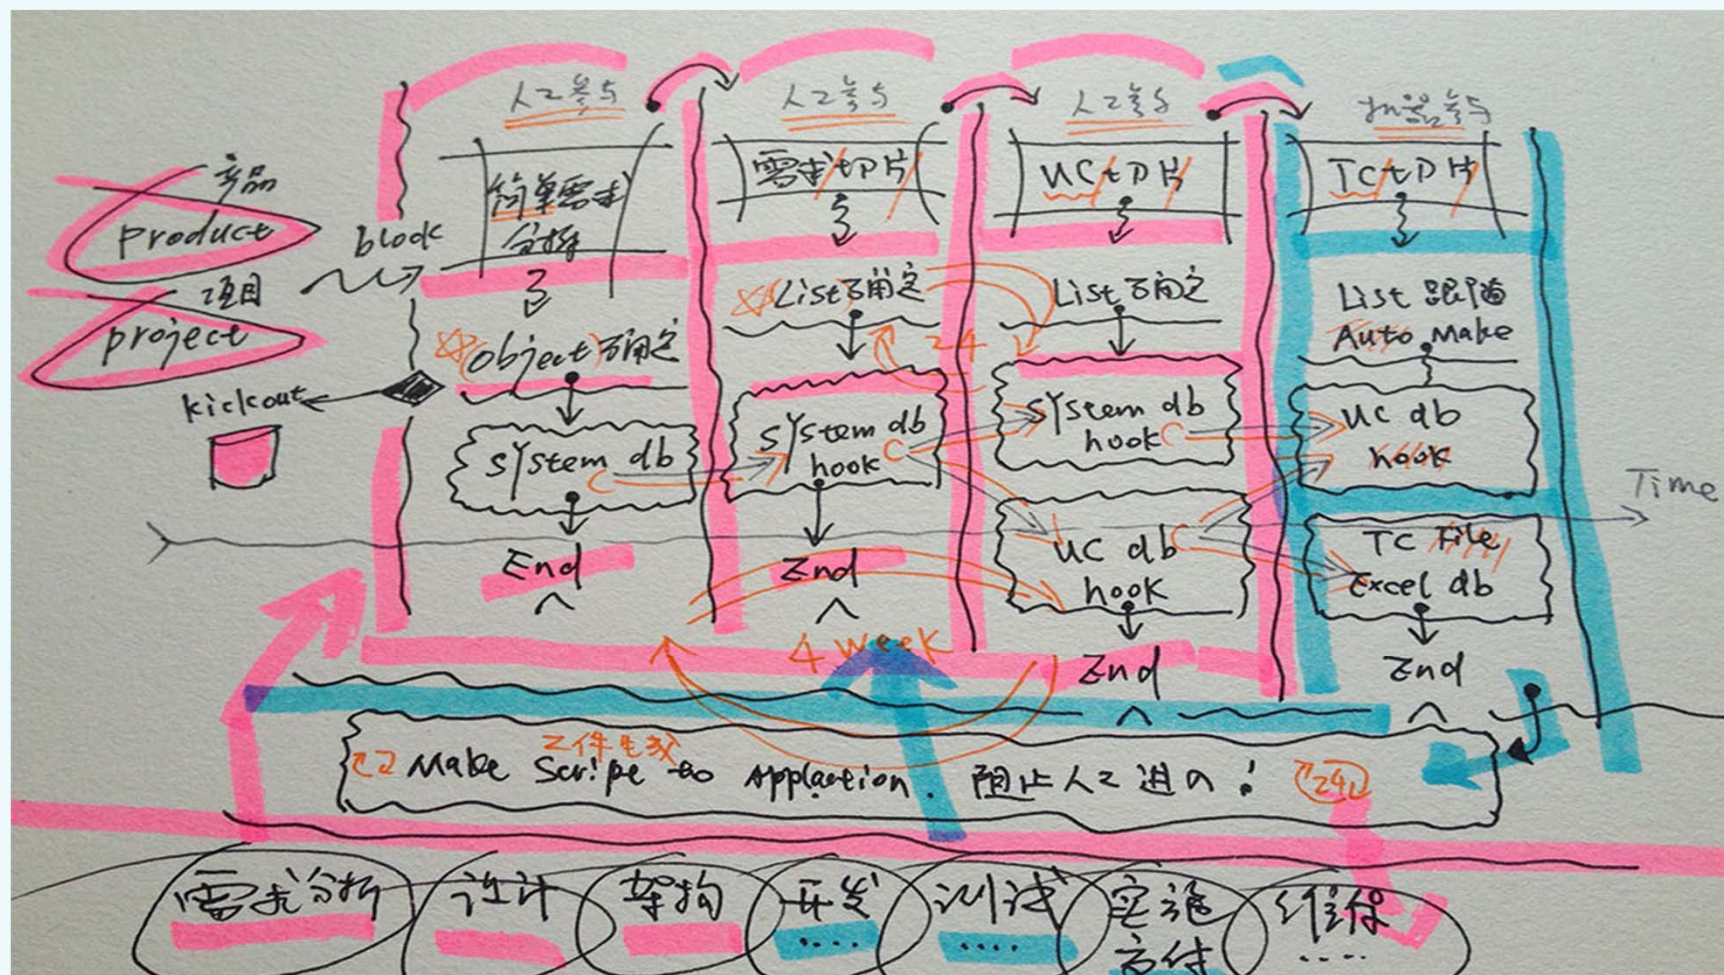 人工参与
人工参与
人工参与
机器参与
产品
product
项目
project
block
kickout
简单需求
分析
object 确定
system db
End
需求切片
List 确定
24
system db
hook
End
4 week
UC切片
List 确定
system db
hook
UC db
hook
End
TC切片
List 跟随
Auto Make
UC db
hook
TC File
Excel db
End
Time
工件生成
Make Script to Applaction. 阻止人工进入! 24
需求分析
设计
架构
开发
....
测试
....
实施
交付
维保
....